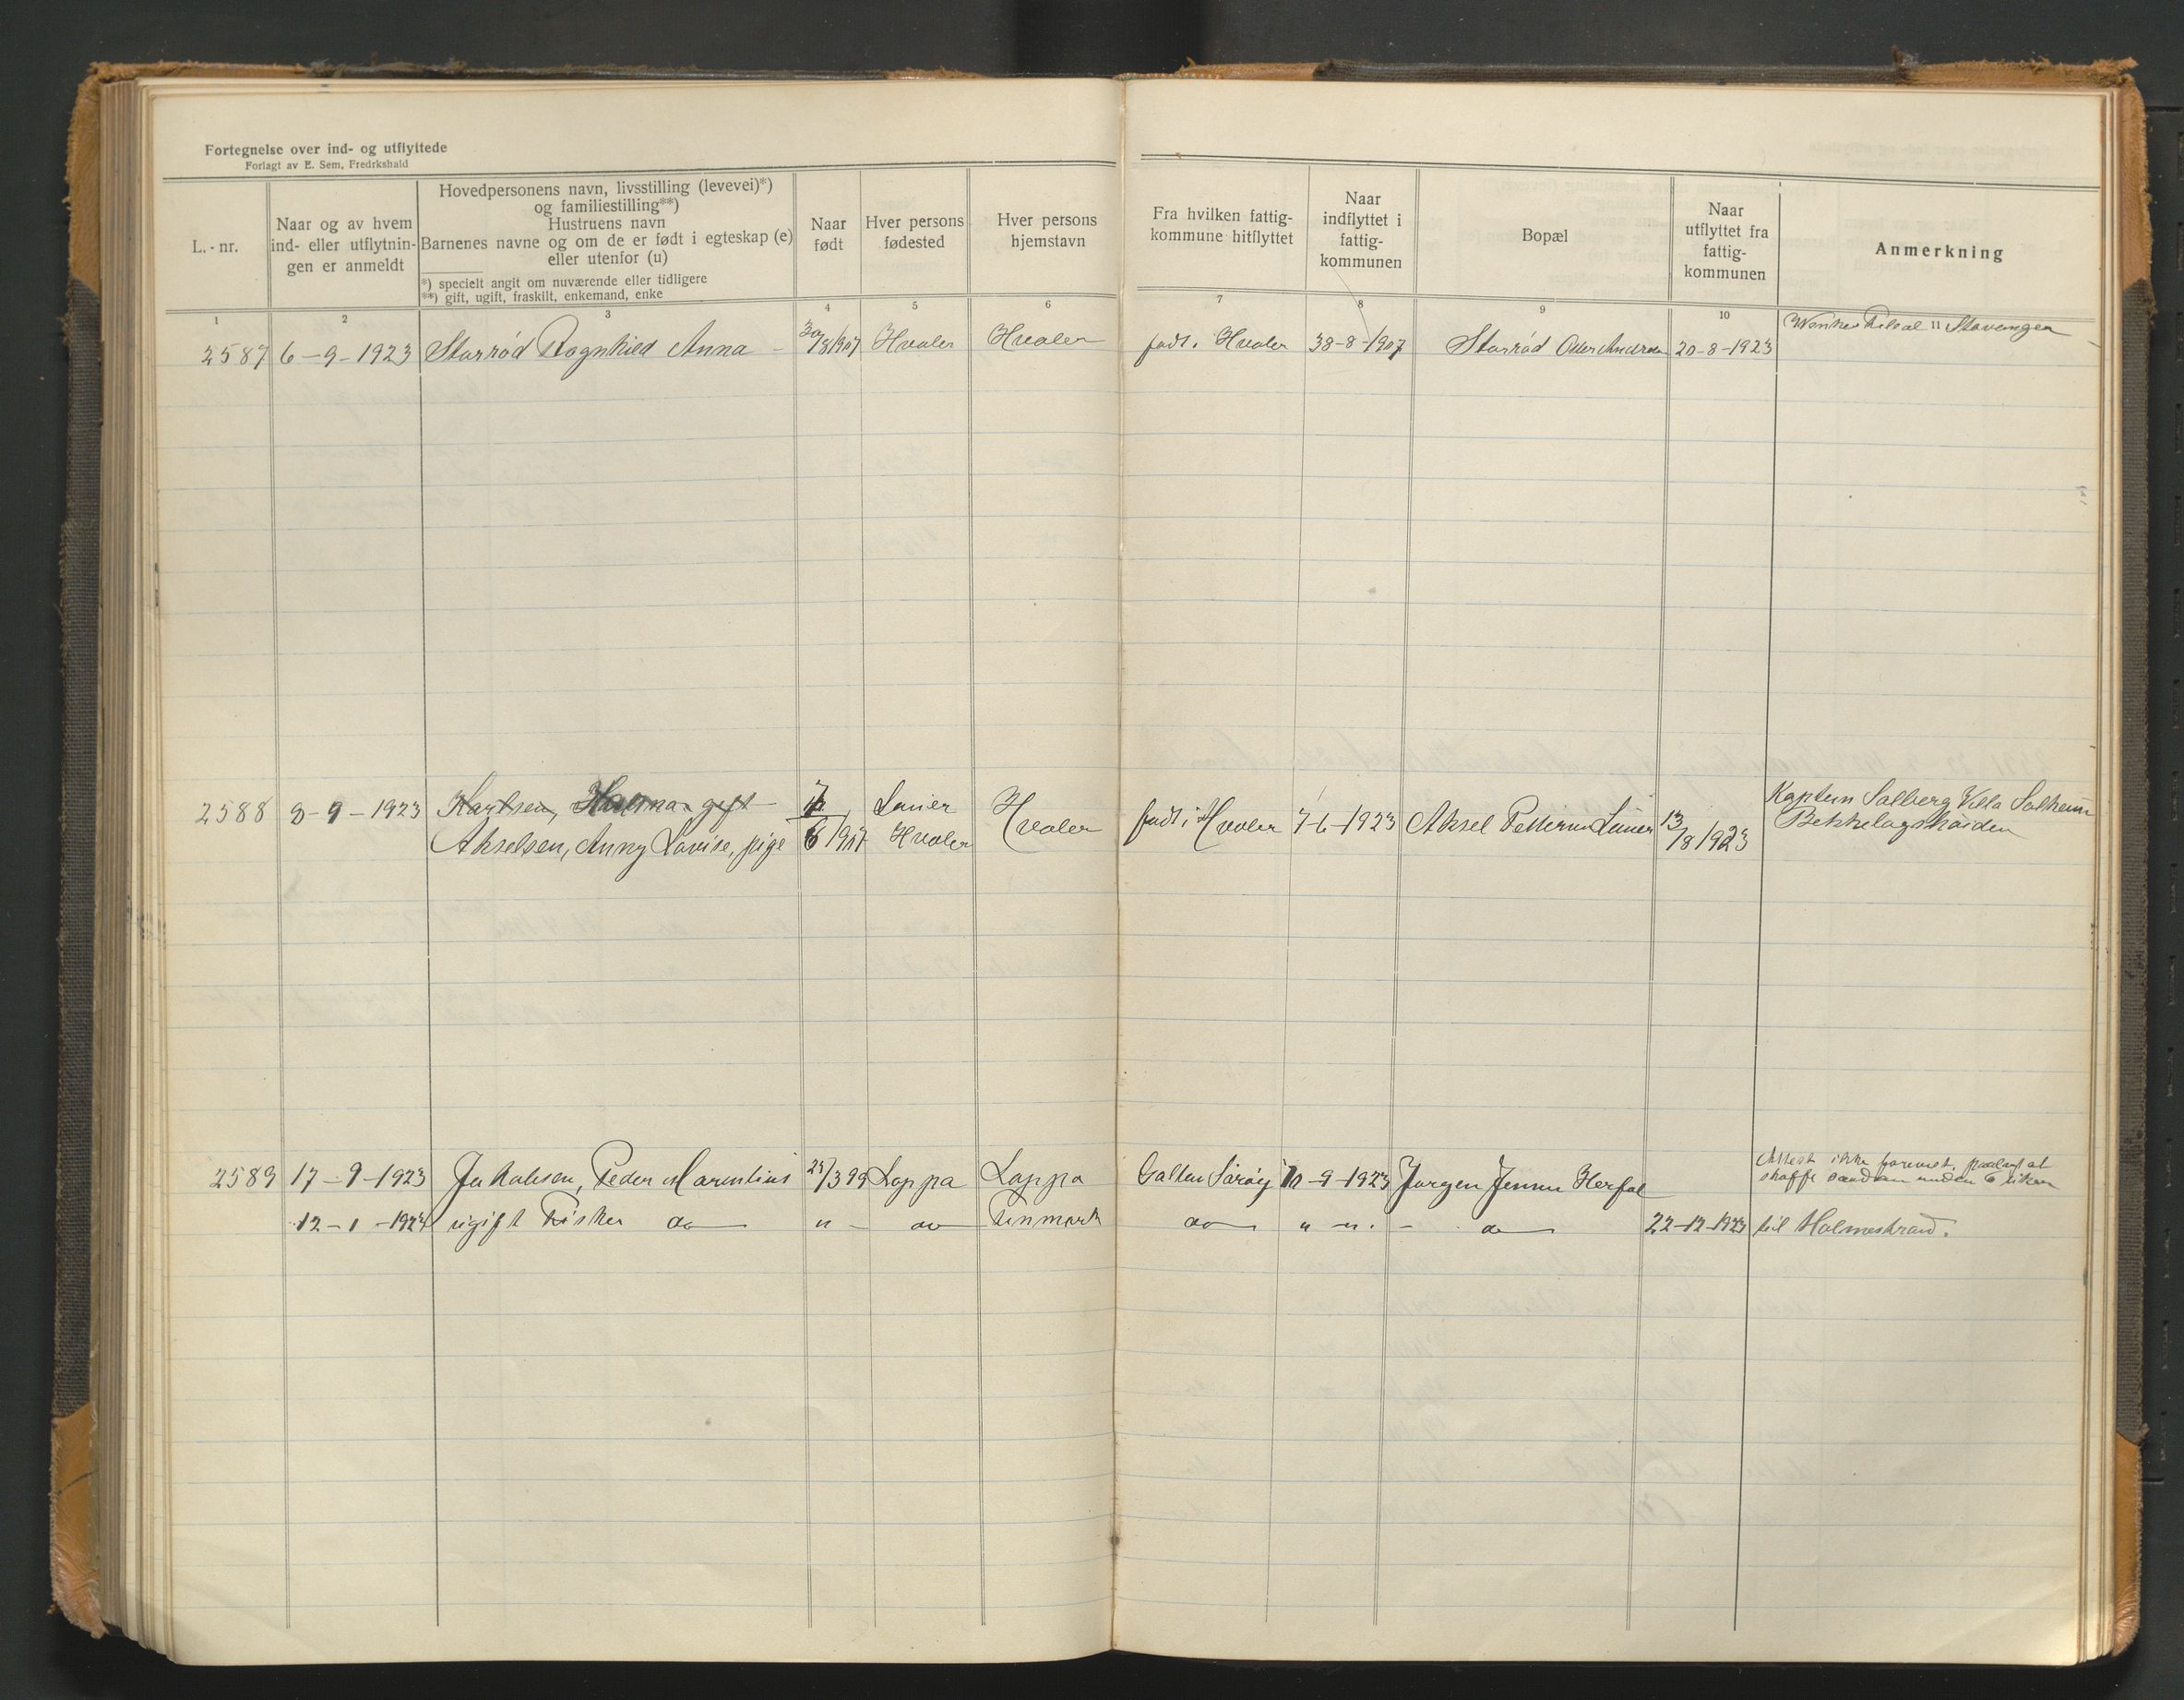 Fortegnelse over ind- og utflyttede
Forlagt av E. Sem, Fredrkshald
L.-nr.
Naar og av hvem
ind- eller utflytnin-
gen er anmeldt
Hovedpersonens navn, livsstilling (levevei)*)
og familiestilling**)
Hustruens navn
Barnenes navne og om de er født i egteskap (e)
eller utenfor (u)
*) specielt angit om nuværende eller tidligere
**) gift, ugift, fraskilt, enkemand, enke
Naar
født
Hver persons
fødested
Hver persons
hjemstavn
Fra hvilken fattig-
kommune hitflyttet
Naar
indflyttet i
fattig-
kommunen
Bopæl
Naar
utflyttet fra
fattig-
kommunen
Anmerkning
1 2 3 4 5 6 7 8 9 10
2587 6-9-1923 Storrød Ragnhild Anna - 30/8 1907 Hvaler Hvaler født i Hvaler 38-8-1907 Storrød 20-8-1923 11 Stavanger
2588 8-9-1923 Karlsen, gift 7 Lauer Hvaler født i Hvaler 7-6-1923 Aksel Lauer 13/8 1923 Kaptein Solberg Villa Solheim
Akselsen, Anny Lovise, pige 6 1907 Hvaler Bekkelagshøiden
2589 17-9-1923 Jakobsen, Peder Marentius /3 99 Loppa Loppa Galten Sørøy 10-9-1923 Jørgen Jensen Herføl Attest ikke
skaffe saadan inden 6 uker
12-1-1924 ugift Fisker do " - do Finmark do " -". - do 22-12-1923 til Holmestrand.